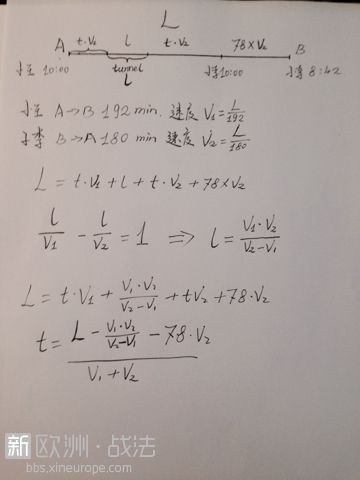 L
A t·V₂ l t·V₂ 78×V₂ B
小王 10:00 tunnel 小李 10:00 小李 8:42
l
小王 A→B 192 min. 速度 V₁=L/192
小李 B→A 180 min 速度 V₂=L/180
L = t·V₁ + l + t·V₂ + 78×V₂
l/V₁ - l/V₂ = 1 ⇒ l = V₁·V₂/V₂-V₁
L = t·V₁ + V₁·V₂/V₂-V₁ + tV₂ + 78·V₂
t = L - V₁·V₂/V₂-V₁ - 78·V₂
V₁ + V₂
新欧洲·战法
bbs.xineurope.com